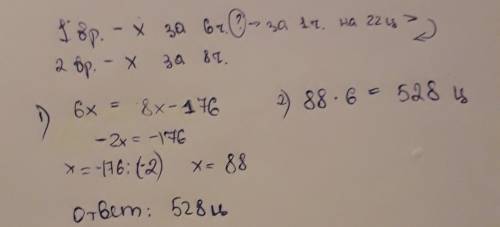 1 бр. - х за 6ч. ? → за 1ч. на 22ц >
2 бр. - х за 8ч.
1) 6х = 8х - 176
-2х = -176
х = -176 : (-2)   х = 88
2) 88 · 6 = 528 ц
Ответ: 528 ц